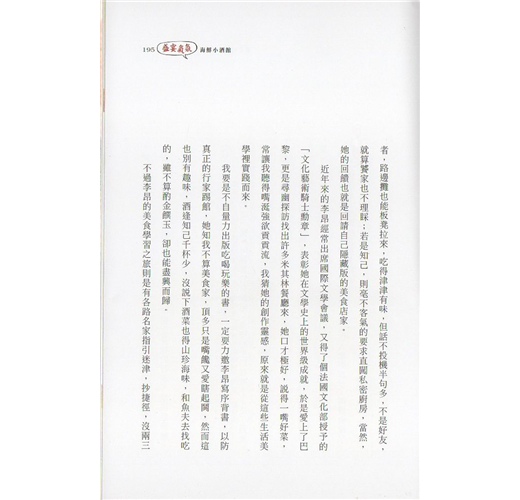 195 盛宴歲氣 海鮮小酒館
者，路邊攤也能板凳拉來，吃得津津有味，但話不投機半句多，不是好友，
就算饗家也不理睬；若是知己，則毫不客氣的要求直闖私密廚房，當然，
她的回饋也就是回請自己隱藏版的美食店家。
近年來的李昂經常出席國際文學會議，又得了個法國文化部授予的
「文化藝術騎士勳章」，表彰她在文學史上的世界級成就，於是愛上了巴
黎，更是尋幽探訪找出許多米其林餐廳來，她口才極好，說得一嘴好菜，
常讓我聽得嘴涎強欲貢貢流，我猜她的創作靈感，原來就是從這些生活美
學裡實踐而來。
我要是不自量力出版吃喝玩樂的書，一定要力邀李昂寫序背書，以防
真正的行家踢館，她知我不算美食家，頂多只是嘴饞又愛瞎起鬨，然而這
也別有趣味，酒逢知己千杯少，沒說下酒菜也得山珍海味，和魚夫去找吃
的，雖不算酌金饌玉，卻也能盡興而歸。
不過李昂的美食學習之旅則是有各路名家指引迷津，抄捷徑，沒兩三